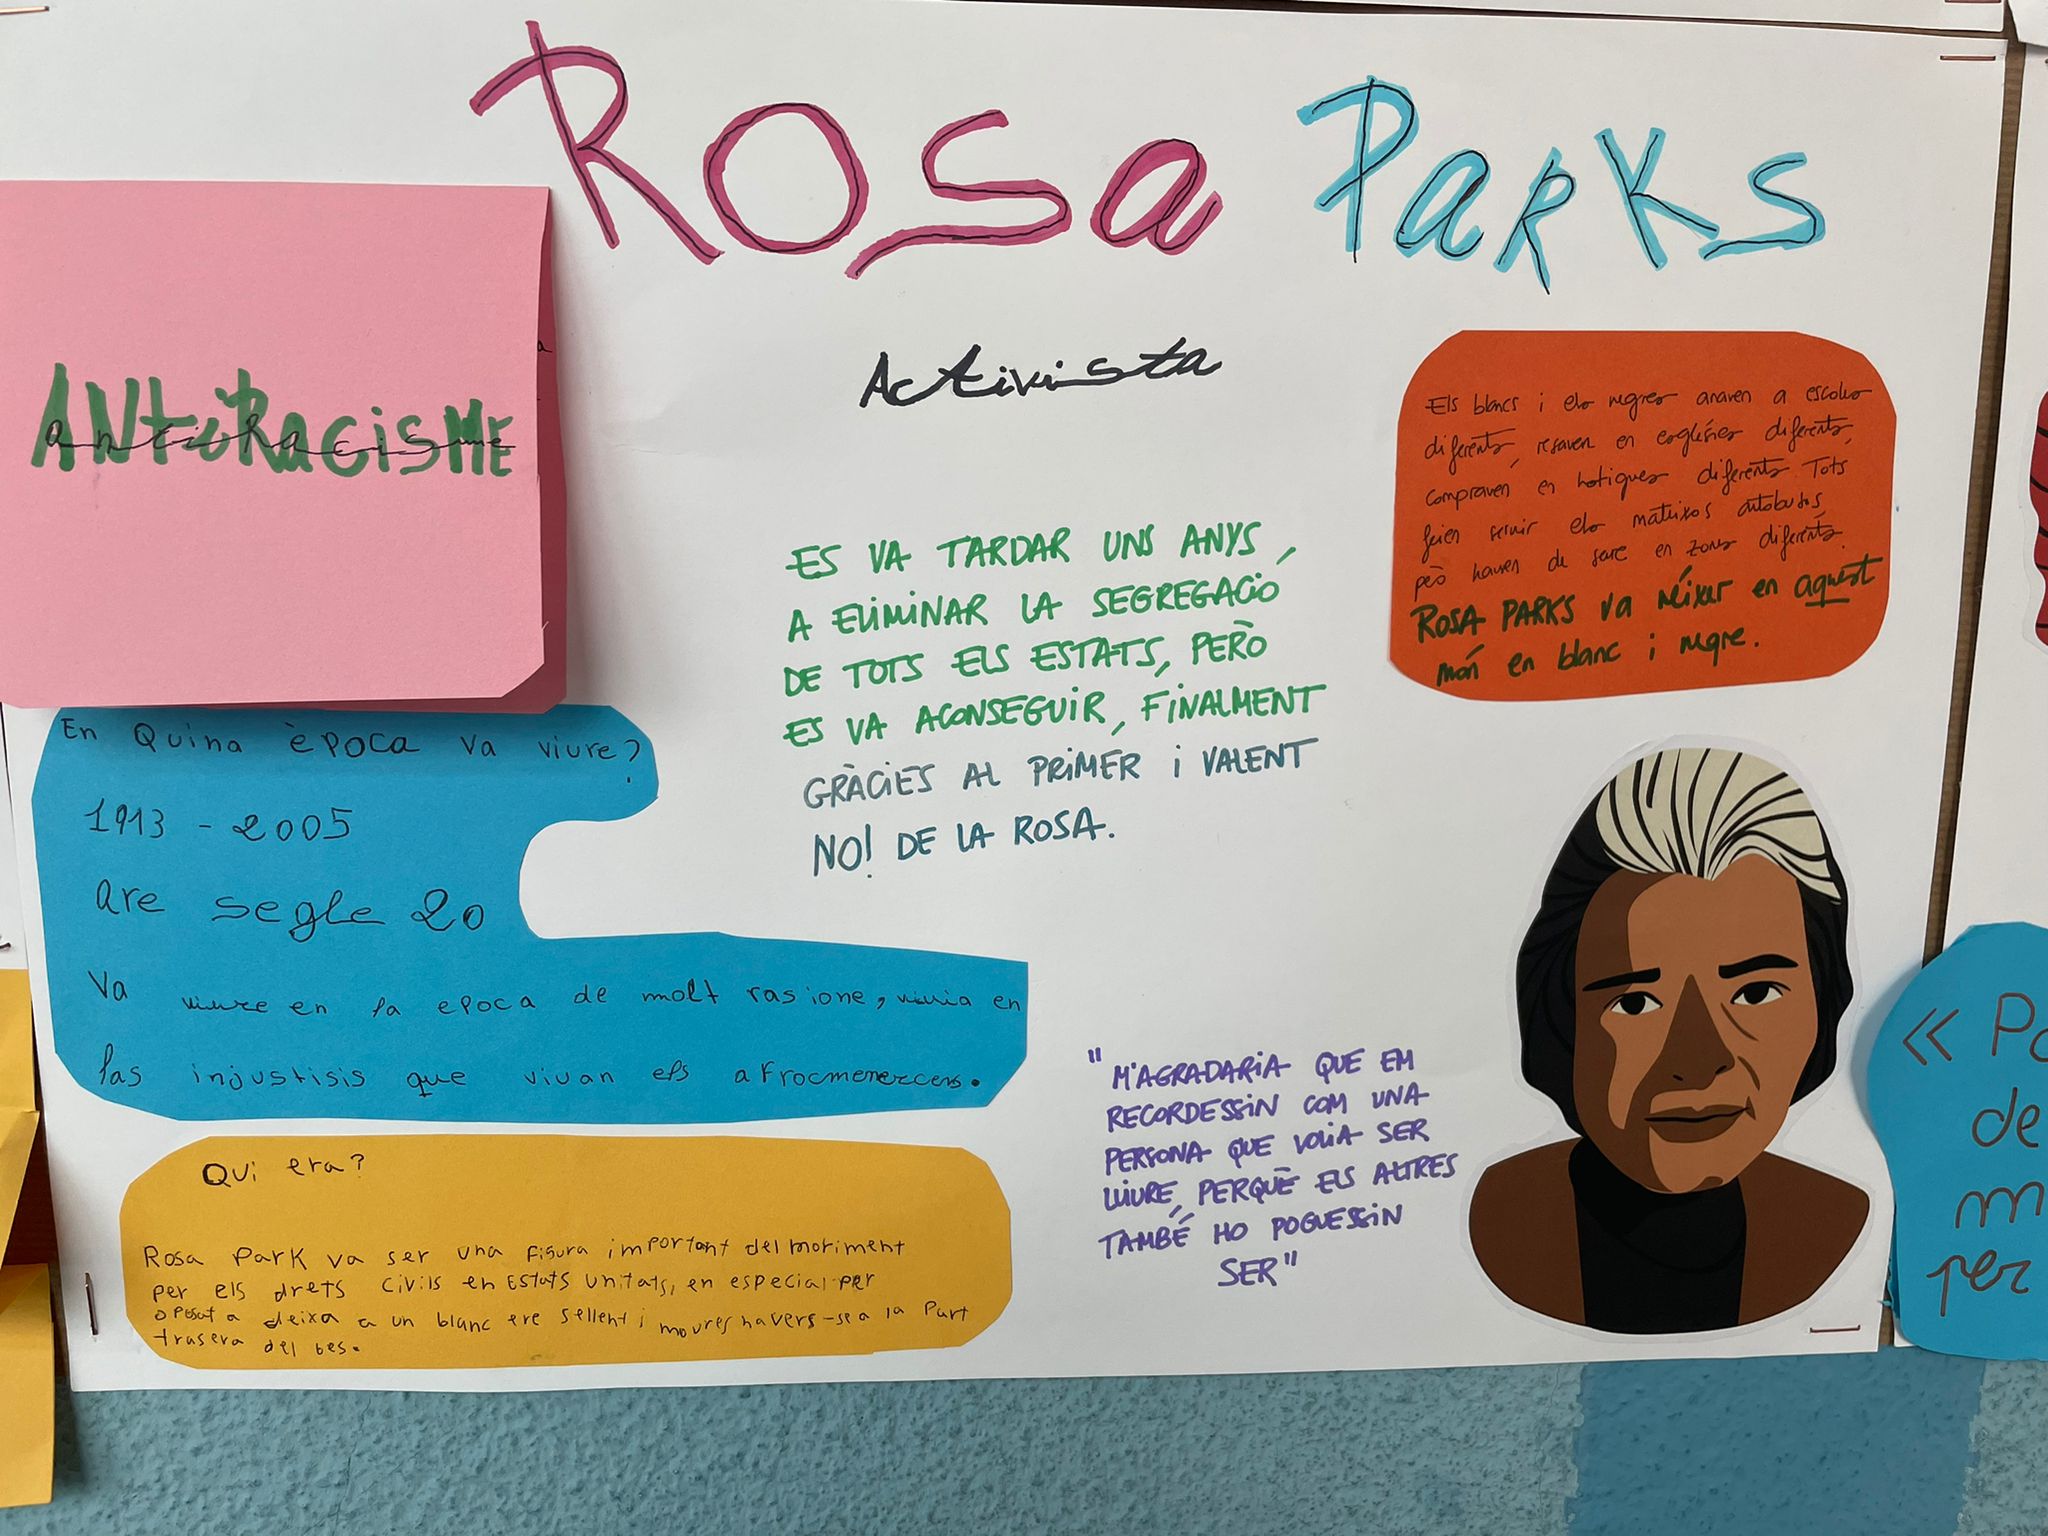 Rosa Parks
Activista
ANtiRacisME
antiRacisme
Els blancs i els negres anaven a escoles
diferents, resaven en esglésies diferents,
compraven en botigues diferents. Tots
feien servir els mateixos autobusos,
però havien de seure en zones diferents.
ROSA PARKS va néixer en aquest
món en blanc i negre.
ES VA TARDAR UNS ANYS,
A ELIMINAR LA SEGREGACIÓ
DE TOTS ELS ESTATS, PERÒ
ES VA ACONSEGUIR, FINALMENT
GRÀCIES AL PRIMER I VALENT
NO! DE LA ROSA.
En Quina època va viure?
1913 - 2005
are segle 20
Va viure en la epoca de molt rasione, vivia en
las injustisis que vivan els
Qui era?
Rosa Park va ser una figura important del moviment
per els drets civils en Estats Unitats, en especial per
a deixa a un blanc ere sellent i a la Part
trasera del bes.
"M'AGRADARIA QUE EM
RECORDESSIN COM UNA
PERSONA QUE VOLIA SER
LLIURE, PERQUÈ ELS ALTRES
TAMBÉ HO POGUESSIN
SER"
« Po
de
m
per